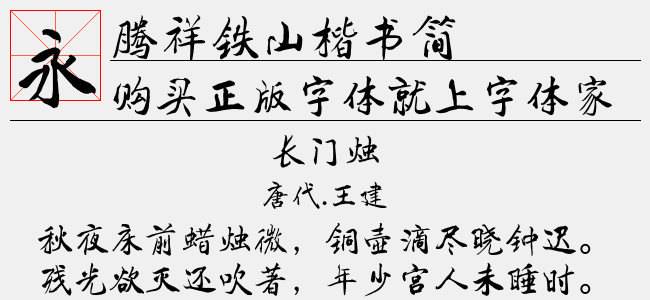 永
腾祥铁山楷书简
购买正版字体就上字体家
长门烛
唐代.王建
秋夜床前蜡烛微，铜壶滴尽晓钟迟。
残光欲灭还吹著，年少宫人未睡时。